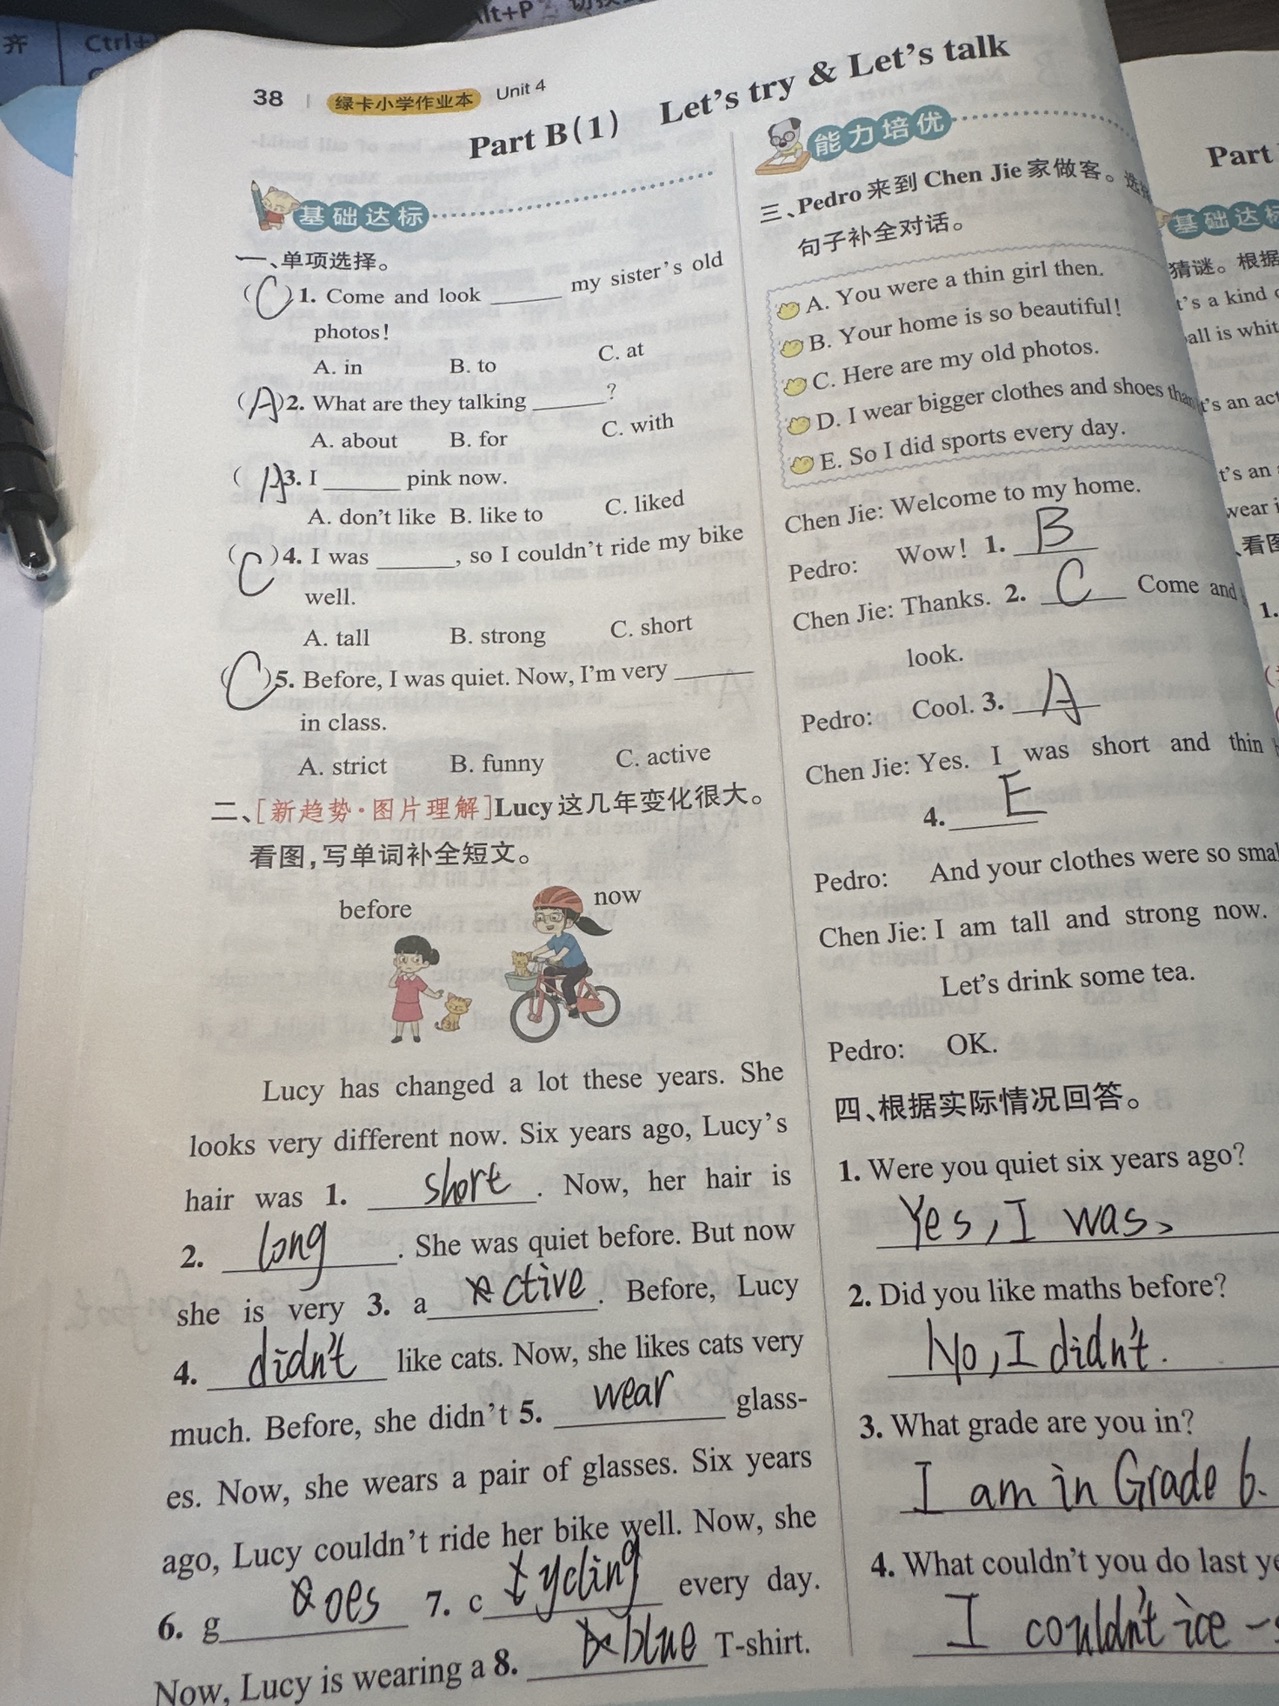 齐
Ctrl+
Alt+P
切换
38 绿卡小学作业本 Unit 4
Part B(1) Let's try & Let's talk
基础达标
一、单项选择。
(C)1. Come and look ______ my sister's old
photos!
A. in B. to C. at
(A)2. What are they talking ______?
A. about B. for C. with
(A)3. I ______ pink now.
A. don't like B. like to C. liked
(C)4. I was ______, so I couldn't ride my bike
well.
A. tall B. strong C. short
(C)5. Before, I was quiet. Now, I'm very ______
in class.
A. strict B. funny C. active
二、[新趋势·图片理解]Lucy这几年变化很大。
看图,写单词补全短文。
before now
Lucy has changed a lot these years. She
looks very different now. Six years ago, Lucy's
hair was 1. short. Now, her hair is
2. long. She was quiet before. But now
she is very 3. active. Before, Lucy
4. didn't like cats. Now, she likes cats very
much. Before, she didn't 5. wear glass-
es. Now, she wears a pair of glasses. Six years
ago, Lucy couldn't ride her bike well. Now, she
6. goes 7. cycling every day.
Now, Lucy is wearing a 8. blue T-shirt.
能力培优
三、Pedro来到Chen Jie家做客。选择
句子补全对话。
A. You were a thin girl then.
B. Your home is so beautiful!
C. Here are my old photos.
D. I wear bigger clothes and shoes than
E. So I did sports every day.
Chen Jie: Welcome to my home.
Pedro: Wow! 1. B
Chen Jie: Thanks. 2. C Come and
look.
Pedro: Cool. 3. A
Chen Jie: Yes. I was short and thin
4. E
Pedro: And your clothes were so smal
Chen Jie: I am tall and strong now.
Let's drink some tea.
Pedro: OK.
四、根据实际情况回答。
1. Were you quiet six years ago?
Yes, I was.
2. Did you like maths before?
No, I didn't.
3. What grade are you in?
I am in Grade 6.
4. What couldn't you do last ye
I couldn't ice-s
Part
基础达标
猜谜。根据
t's a kind
all is whit
t's an act
t's an
wear i
、看图
1.